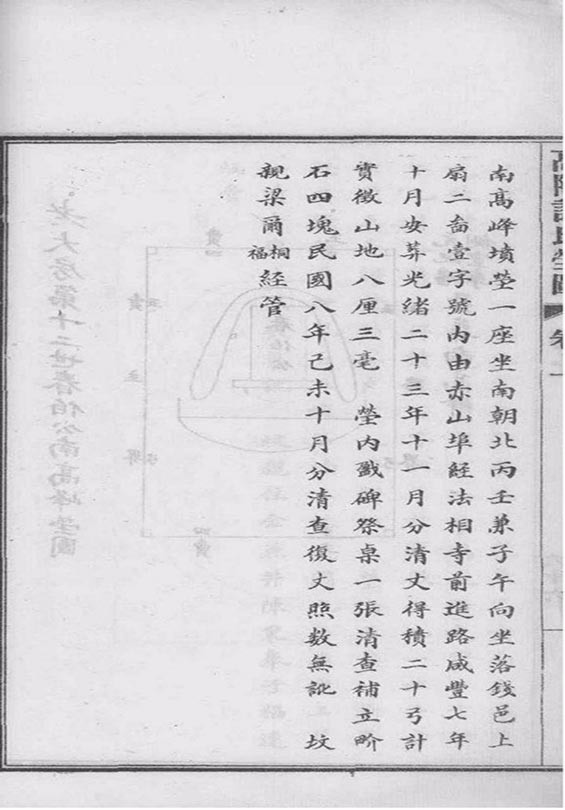 高陽許氏塋圖 卷
南高峰墳塋一座坐南朝北丙壬兼子午向坐落錢邑上
扇二啚壹字號內由赤山埠經法相寺前進路咸豐七年
十月安葬光緒二十三年十一月分清丈得積二十弓計
實徵山地八厘三毫 塋內戤碑祭桌一張清查補立畍
石四塊民國八年己未十月分清查復丈照數無訛 坟
親梁爾桐福經管